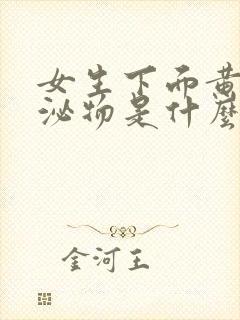 女生下而黄
泌物是什麼
金河王